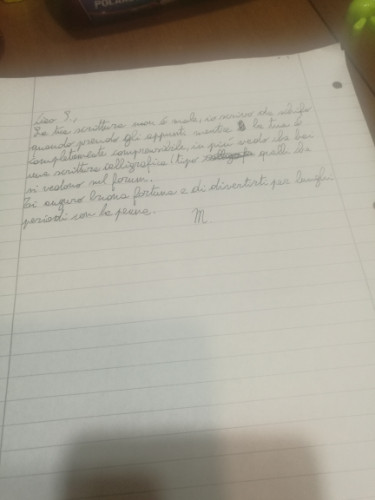 POLAR
Ciao S.,
La tua scrittura non è male, io scrivo che
quando prendo gli appunti mentre la tua è
completamente comprensibile, in più vedo che hai
una scrittura calligrafica (tipo quelle che
si vedono sul forum.
Ti auguro buona fortuna e di divertirti per lunghi
periodi con la penna.
M